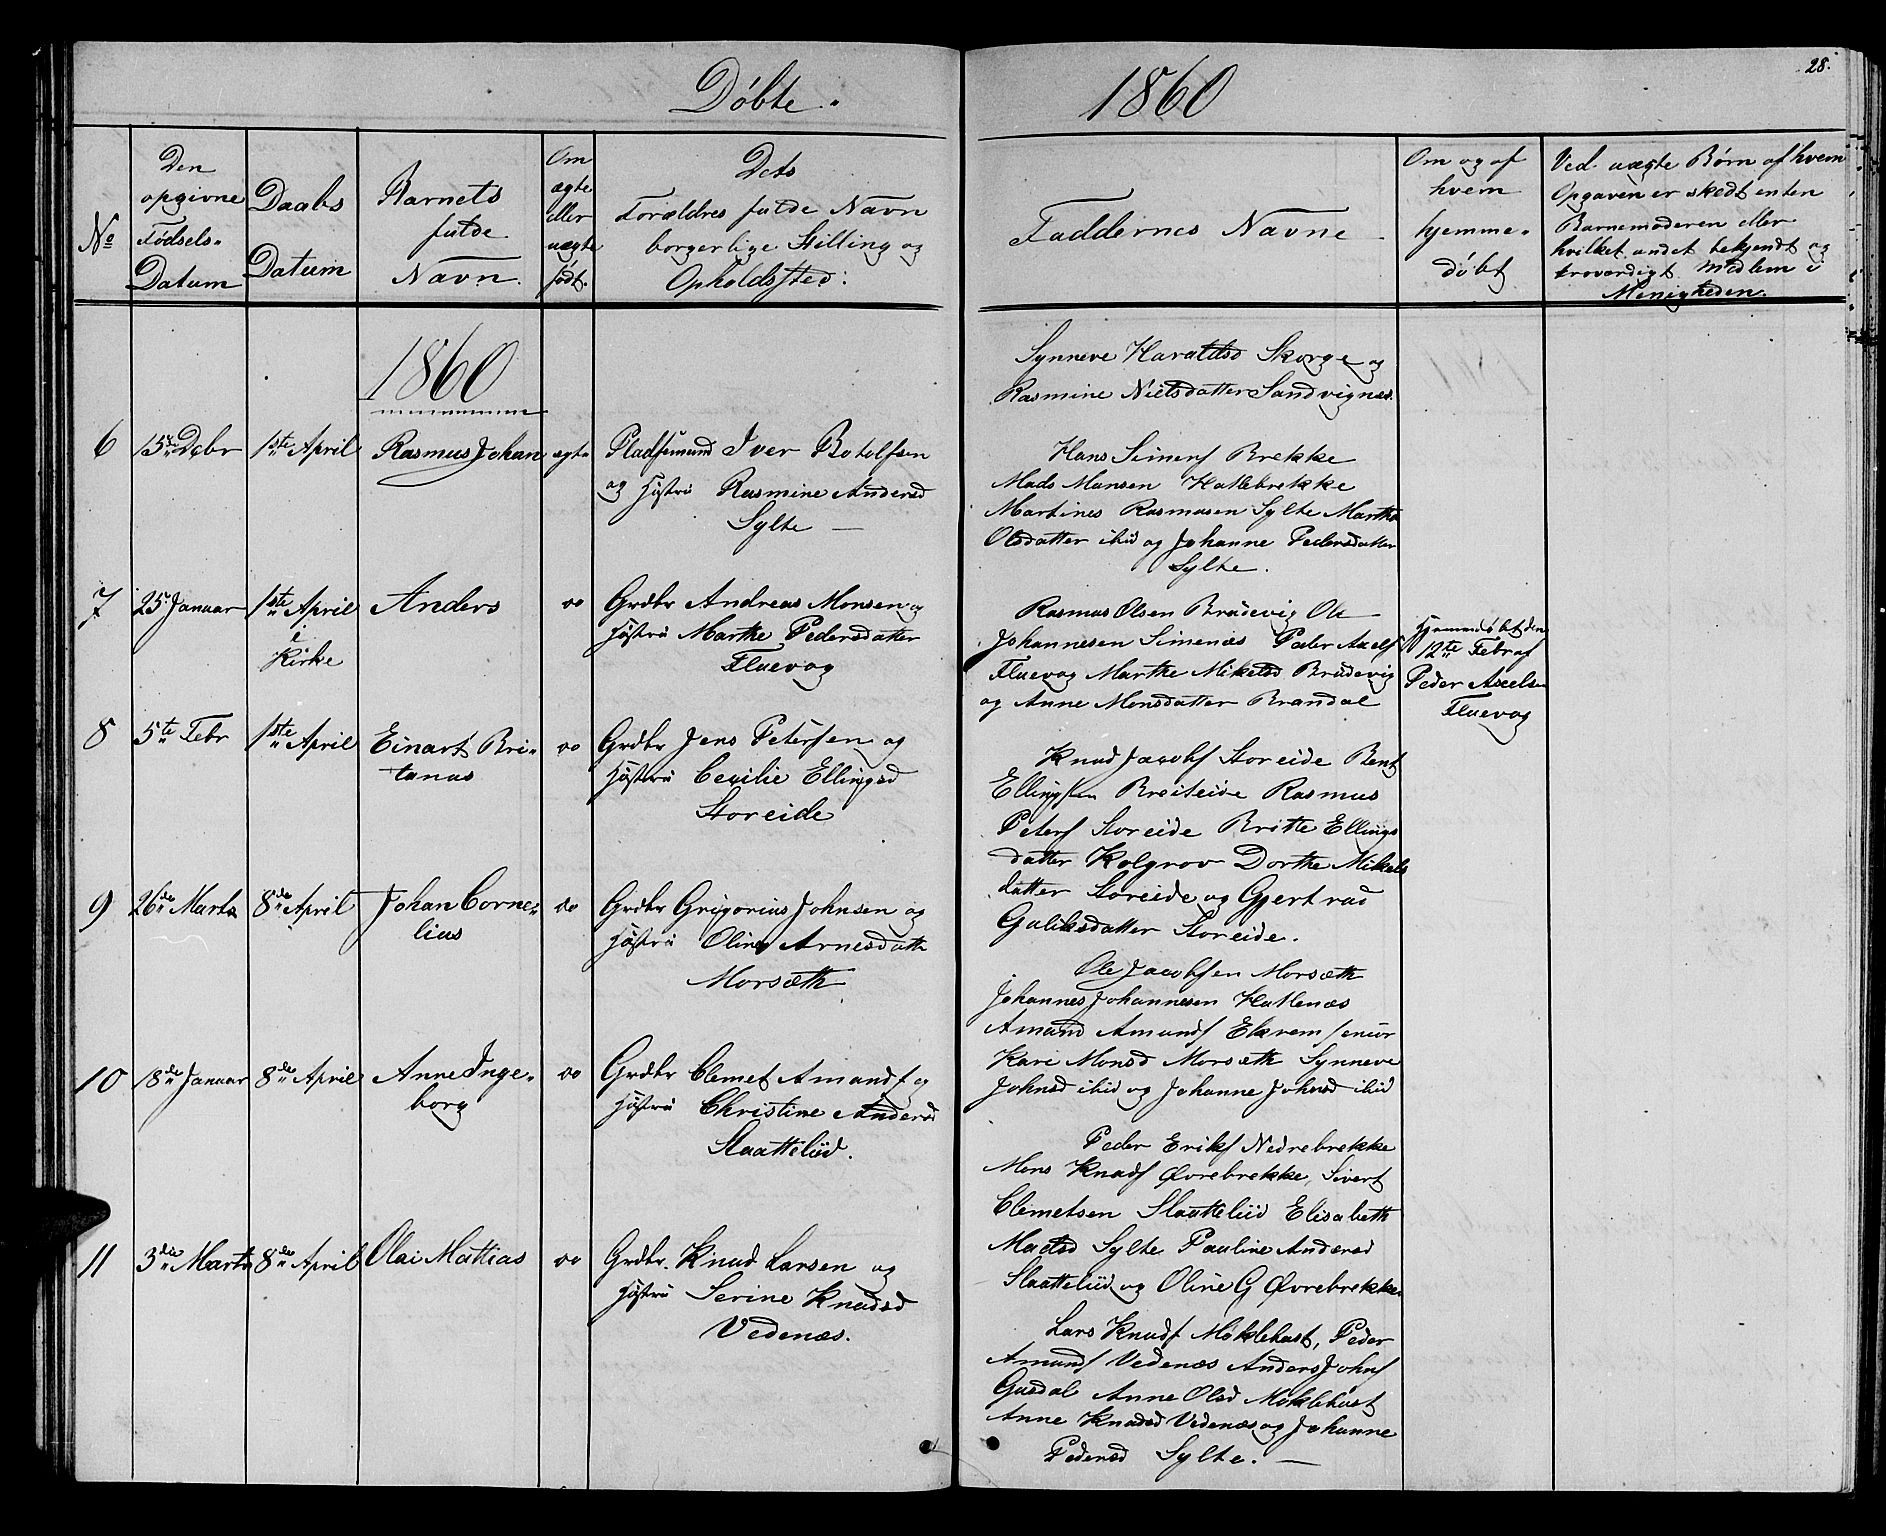 Døbte.
1860
28.
No
Den
opgivne
Fødsels-
Datum
Daabs
Datum
Barnets
fulde
Navn.
Om
ægte
eller
uægte
født.
Dets
Forældres fulde Navn
borgerlige Stilling og
Opholdssted:
Faddernes Navne
Om og af
hvem
hjemme-
døbt
Ved uægte Børn af hvem
Opgaven er skedt enten
Barnemoderen eller
hvilket andet bekjendt og
troværdigt Medlem i
Menigheden.
1860
Synneve Haraldsd Skorge og
Rasmine Nielsdatter Sandvignæs.
6 15de Dcbr 1ste April Rasmus Johan ægte Pladsemand Iver Botolfsen
og Hustru Rasmine Andersd
Sylte
Hans Simens Brekke
Mads Monsen Hatlebrekke
Martines Rasmusen Sylte Marthe
Olsdatter ibid og Johanne Pedersdatter
Sylte.
7 25. Januar 1ste April Anders oo Grdbr Andreas Monsen og
i
Kirke
Hustru Marthe Pedersdatter
Fluevog
Rasmus Olsen Brudevig Ole
Johannesen Simenæs Peder Axels
Fluevog Marthe Mikelsd Brudevig
og Anne Monsdatter Brandal
Hjemmedøbt den
12te Febr af
Peder Axelsen
Fluevog
8 5te Febr 1ste April Einart Bri-
tanus
oo Grdbr Jens Petersen og
Hustru Cecilie Ellingsd
Storeide
Knud Jacobs Storeide Bent
Ellingsen Breiteide Rasmus
Peters Storeide Britte Ellings
datter Kolgrov Dorthe Mikels
datter Storeide og Gjertrud
Guliksdatter Storeide.
9 26de Marts 8de April Johan Corne-
lius
oo Grdbr Grigorius Johnsen og
Hustru Oline Arnesdatt
Morsæth
Ole Jacobsen Morsæth
Johannes Johannesen Hatlenæs
Amund Amunds Ekrem senior
Kari Monsd Morsæth Synneve
Johnsd ibid og Johanne Johnsd ibid
10 18de Januar 8de April Anne Inge-
borg
oo Grdbr Clemet Amunds og
Hustru Christine Andersd
Slaattelid.
Peder Eriks Nedrebrekke
Mons Knuds Øvrebrekke, Sivert
Clemetsen Slaattelid Elisabeth
Madsd Sylte Pauline Andersd
Slaattelid og Oline G Øvrebrekke.
11 3die Marts 8de April Olai Mattias oo Grdbr. Knud Larsen og
Hustru Serine Knudsd
Vedenæs.
Lars Knuds Møklebust, Peder
Amunds Vedenæs Anders Johns
Gusdal Anne Olsd Møklebust
Anne Knudsd Vedenæs og Johanne
Pedersd Sylte.